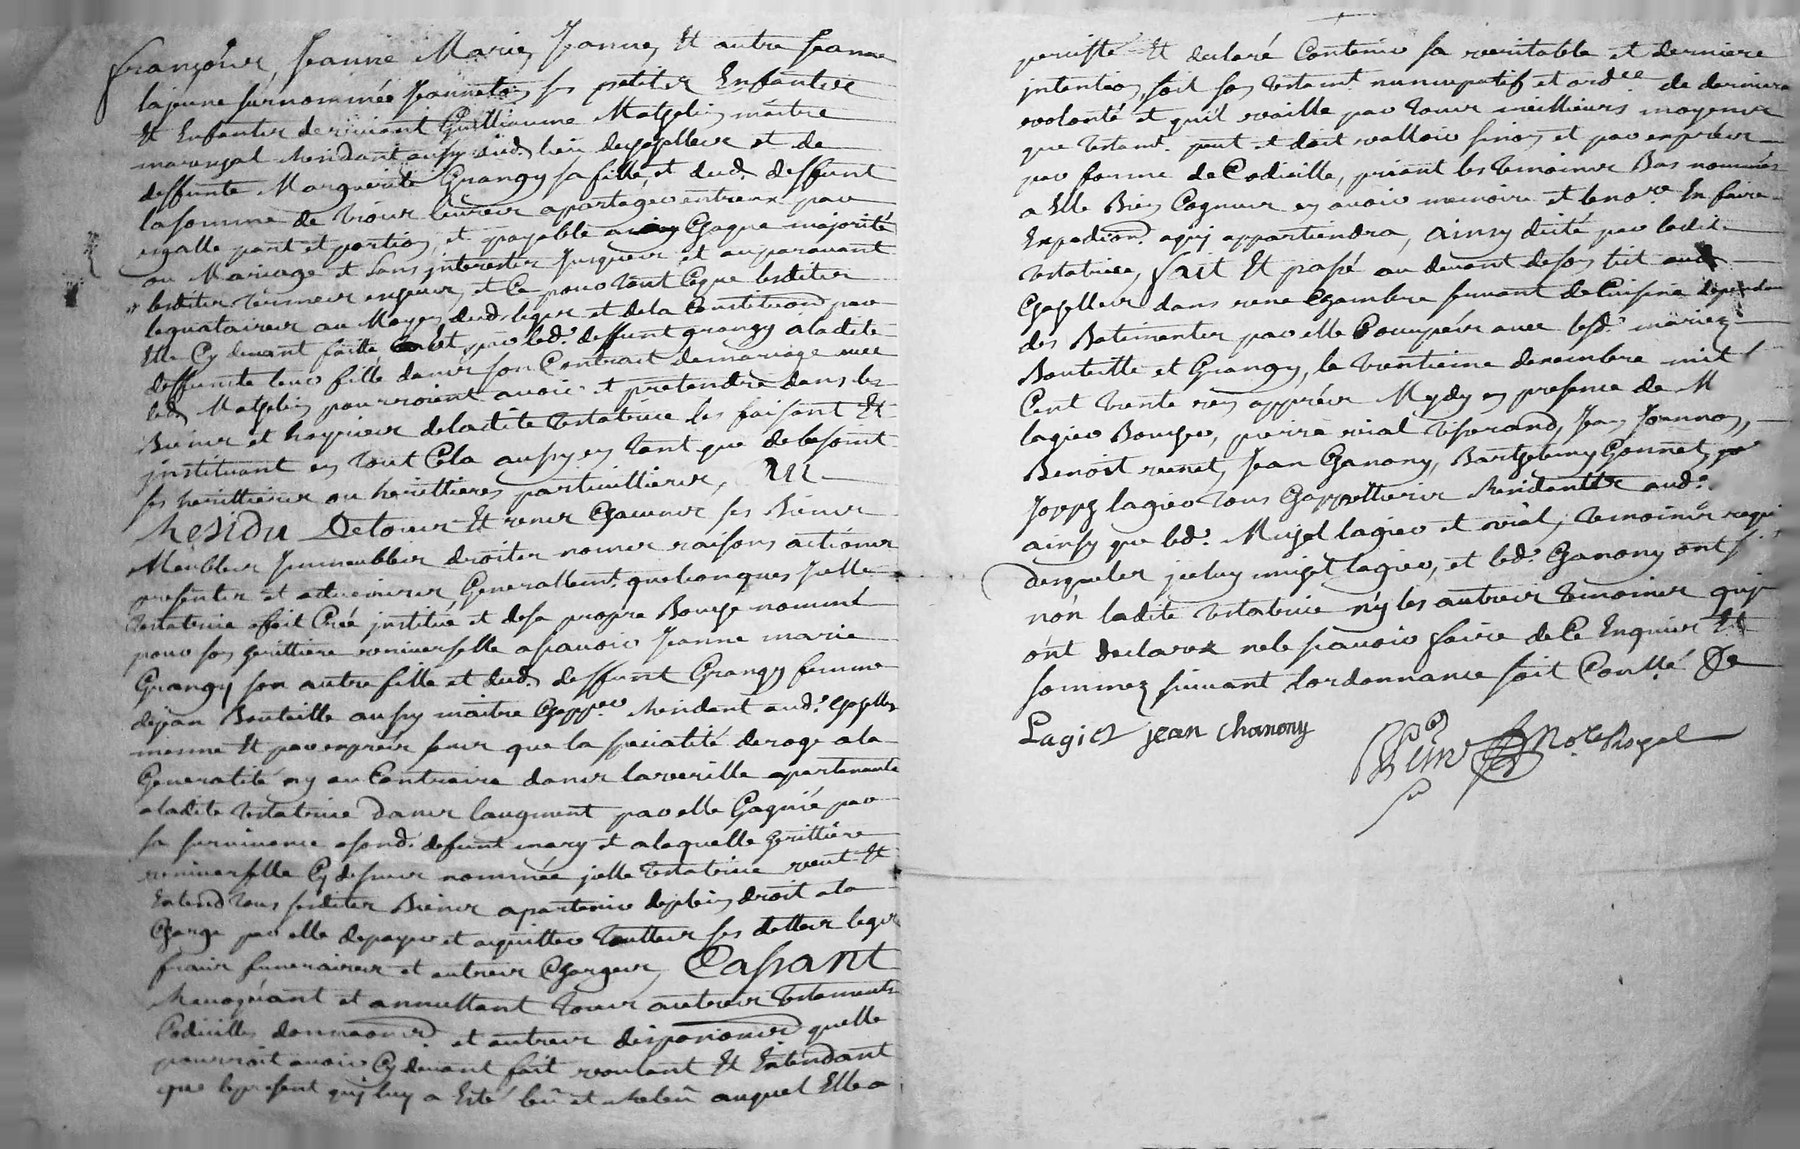 françoise, Jeanne Marie, Jeanne, Et autre Jeanne
la jeune surnommée Jeanneton ses petites Enfantes
Et Enfantes derivant Guilliaume Mathelin maitre
marengal Residant aussy aud. lieu deschapelles et de
deffunte Marguerite Grangy sa fille, et dud. deffunt
la somme de livres a partager entreux par
egalle part et portion, et payable a chaque majorité
ou Mariage et sans interestes jusques et auparavant
lesdites termes expirés, et Ce pour tout Ceque lesdites
leguataires au Moyen dud. legs et de la Constitution par
Elle Cy devant faitte et par led. deffunt grangy a ladite
deffunte leur fille dans son Contract de mariage avec
led. Mathelin pourroient avoir et pretendre dans les
Biens et hoyries deladite testatrice les faisant Et
instituant en tout Cela aussy en tant que de besoint
ses heritières ou heritieres particuillieres, Au
Residu De tous Et uns Chacuns ses Biens
Meubles Immeubles droites noms raisons actions
presentes et advenires Generallemt. quelconques Jcelle
testatrice a fait Créé jnstitué et desa propre Bouche nommé
pour son herittière universelle a sçavoir Jeanne marie
Grangy son autre fille et dud. deffunt Grangy femme
dejean Bouteille aussy maitre Residant aud. Chapelles
mesme Et par exprès sans que la specialité deroge a la
Generalité ny au Contraire dans la apartenante
aladite testatrice dans laugment par elle Gagnié par
sa survivance a sond. defunt mary et a laquelle heritière
universelle Cy dessus nommée jcelle testatrice veut Et
Entend tous sesdites Biens apartenir deplein droit a la
Charge par elle depayer et aquitter touttes ses dettes legs
frais funeraires et autres Charges, Cassant
Revoquant et annullant tous autres testaments
Codicilles donnaons et autres disposions quelle
pourroit avoir Cy devant fait voulant Et Entendant
que le present quy luy a Eté leu et releu auquel Elle a
persisté Et declaré Contenir sa veritable et derniere
jntention, soit son testamt. nuncupatif et ordce. de derniere
volonté et quil vaille par tous meilleurs moyens
que testamt. peut et doit valloir sinon et par exprès
par forme de Codicille, priant les temoins Bas nommés
a Elle Bien Cognus en avoir memoire et le nore. En faire
Expedion. a quy appartiendra, ainsy dicté par ladit.
testatrice, fait Et passé au devant de son lit aud.
Chapelles dans une Chambre servant de Cuisine dependant
des Batimentes par elle occupées avec lesd. mariez
Bouteille et Grangy, le trentieme decembre mil
Cent trente six apprès Mydy en presence de M
lagier Bourge, pierre vial tisserand, Jean Joannon,
Benoist reinet, Jean Chanony, Barthelemy Gonnet, et
Joseph lagier tous Residantes aud.
ainsy que led. Mijel lagier et vial, temoins requi
desquelles jceluy mijel lagier, et led. Chanony ont s.
nón ladite testatrice ny les autres temoins quy
ónt declarez nele sçavoir faire de Ce Enquis Et
sommez suivant lordonnance soit Conllé De
Lagier jean chanony
Nore. Royal